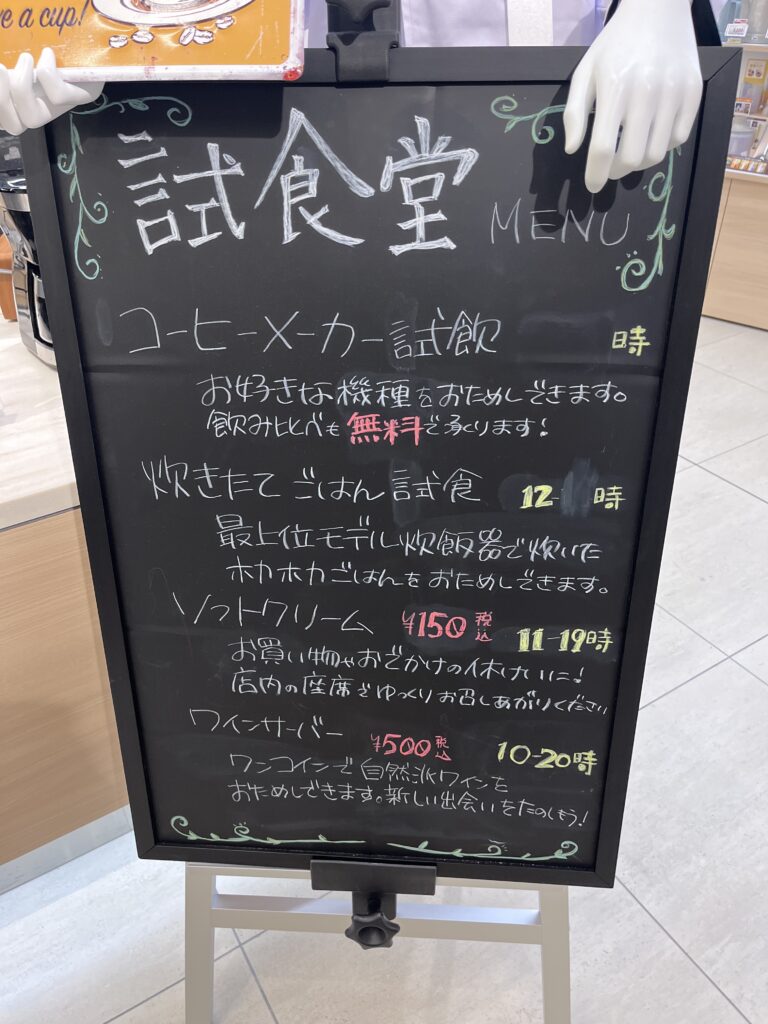 e a cup!
試食堂 MENU
コーヒーメーカー試飲 時
お好きな機種をおためしできます。
飲み比べも無料で承ります!
炊きたてごはん試食 12- 時
最上位モデル炊飯器で炊いた
ホカホカごはんをおためしできます。
ソフトクリーム ¥150税込 11-19時
お買い物やおでかけの休けいに!
店内の座席でゆっくりお召しあがりください
ワインサーバー ¥500税込 10-20時
ワンコインで自然派ワインを
おためしできます。新しい出会いをたのしもう!